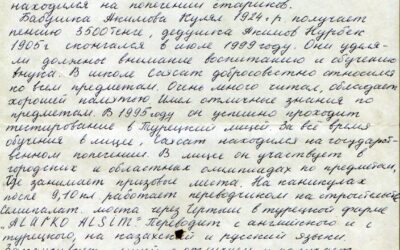 находился на попечении стариков.
Бабушка Акилова Кулял 1924 г.р. получает
пенсию 3500 тенге, дедушка Акилов Нурбек
1905 г скончался в июле 1999 году. Они уделя-
ли должное внимание воспитанию и обучению
внука. В школе Саясат добросовестно относился
ко всем предметам. Очень много читал, обладает
хорошей памятью Имел отличные знания по
предметам. В 1995 году он успешно проходит
тестирование в Турецкий лицей За всё время
обучения в лицее, Саясат находился на государст-
венном попечении. В лицее он участвует в
городских и областных олимпиадах по предметам,
где занимает призовые места. На каникулах
после 9, 10 кл работает переводчиком на стройплощадке
Семипалат. моста через Иртыш в турецкой фирме
„ALARKO ALSIM" Переводит с английского и с
турецкого, на казахский и русский языки.